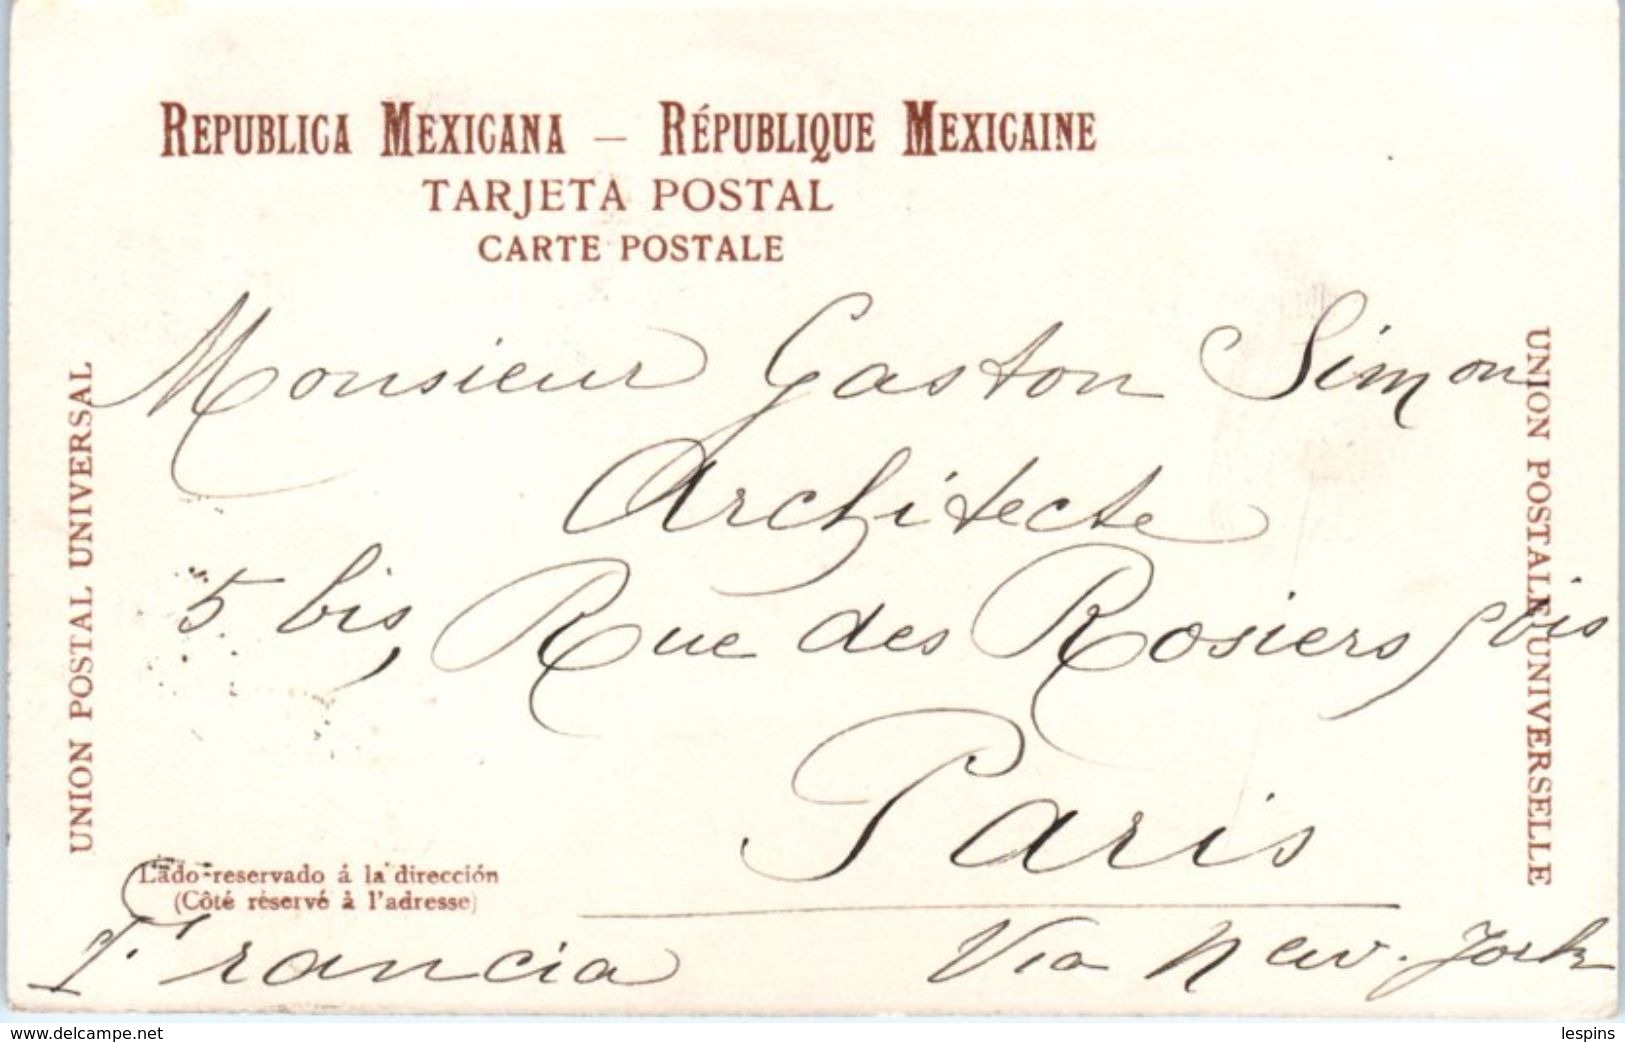 REPUBLICA MEXICANA — RÉPUBLIQUE MEXICAINE
TARJETA POSTAL
CARTE POSTALE
UNION POSTAL UNIVERSAL
UNION POSTALE UNIVERSELLE
Monsieur Gaston Simon
Architecte
5 bis, Rue des Rosiers, 5 bis
Paris
Lado reservado á la dirección
(Côté réservé à l'adresse)
Francia
Via New-York
www.delcampe.net
lespins